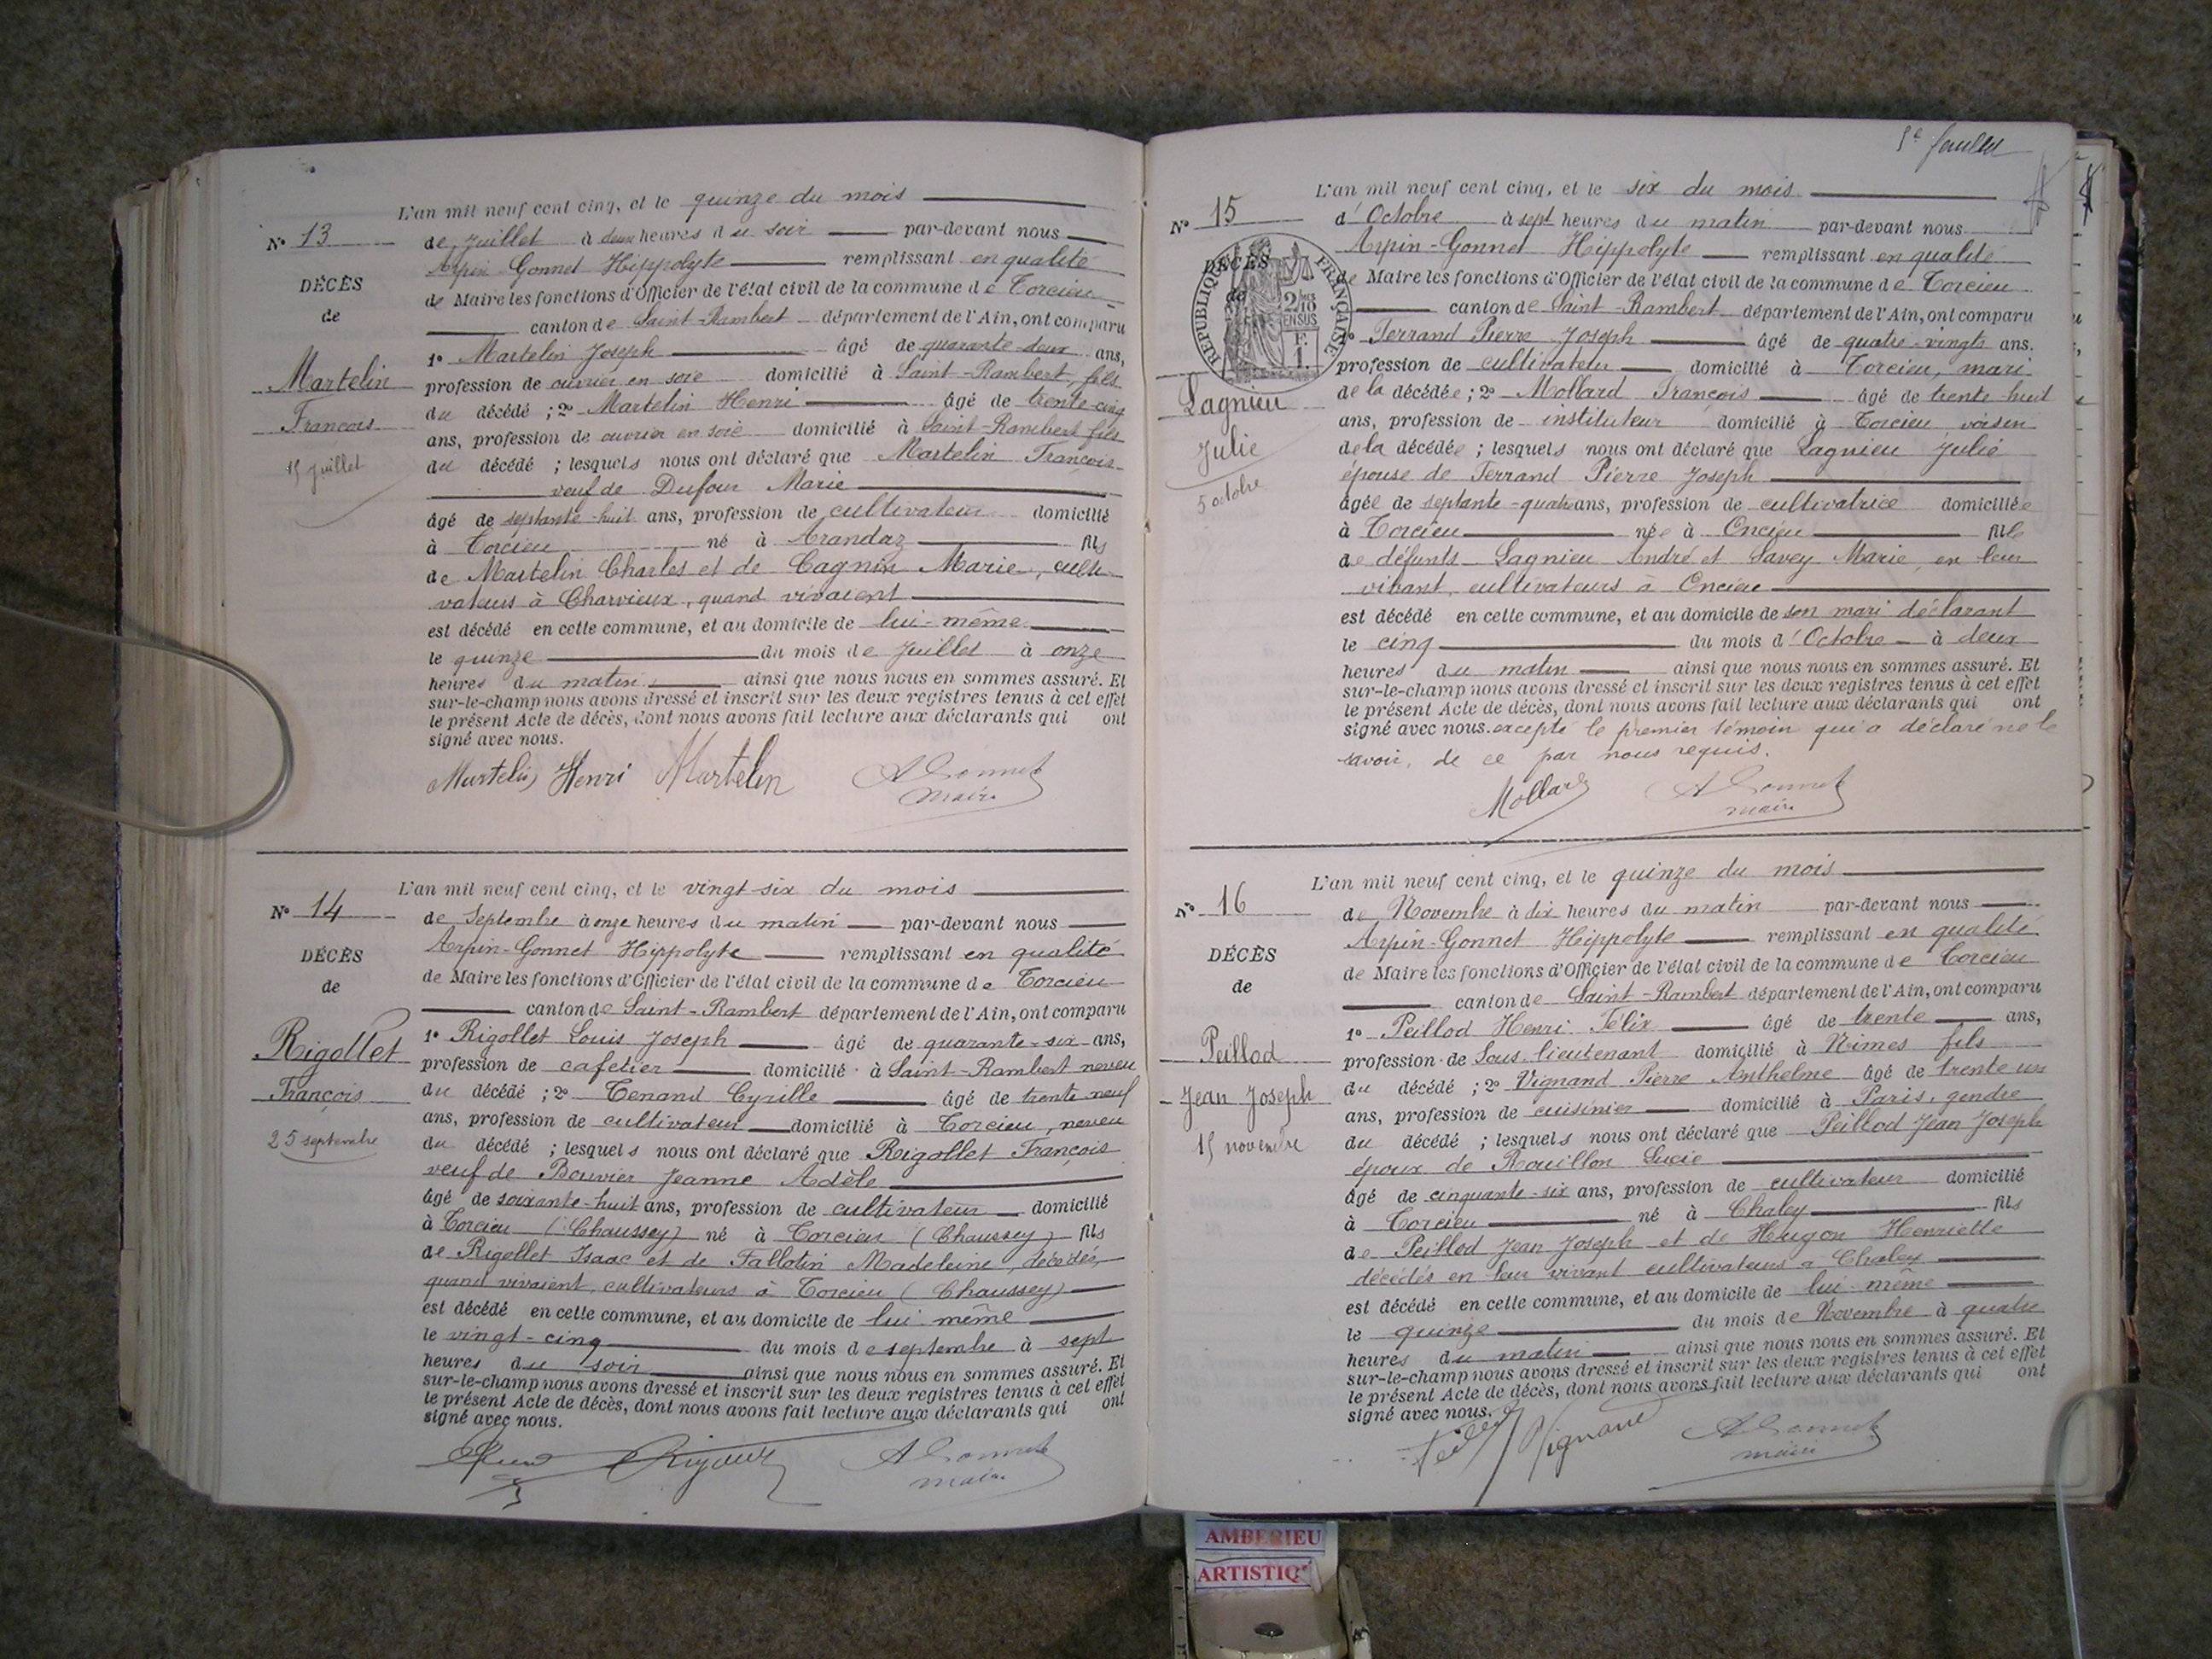 L'an mil neuf cent cinq, et le quinze du mois
N° 13
de Juillet à deux heures du soir par-devant nous
Arpin-Gonnet Hippolyte remplissant en qualité
DÉCÈS
de Maire les fonctions d'Officier de l'état civil de la commune de Torcieu
de
canton de Saint-Rambert département de l'Ain, ont comparu
1° Martelin Joseph âgé de quarante-deux ans,
Martelin
profession de ouvrier en soie domicilié à Saint-Rambert, fils
du décédé ; 2° Martelin Henri âgé de trente-cinq
François
ans, profession de ouvrier en soie domicilié à Saint-Rambert fils
15 juillet
du décédé ; lesquels nous ont déclaré que Martelin François
veuf de Dufour Marie
âgé de septante-huit ans, profession de cultivateur domicilié
à Torcieu né à Arandaz fils
de Martelin Charles et de Cagnin Marie, culti-
vateurs à Charvieux, quand vivaient
est décédé en cette commune, et au domicile de lui-même
le quinze du mois de Juillet à onze
heures du matin ainsi que nous nous en sommes assuré. Et
sur-le-champ nous avons dressé et inscrit sur les deux registres tenus à cet effet
le présent Acte de décès, dont nous avons fait lecture aux déclarants qui ont
signé avec nous.
Martelin Henri Martelin A Gonnet
maire
L'an mil neuf cent cinq, et le vingt-six du mois
N° 14
de Septembre à onze heures du matin par-devant nous
Arpin-Gonnet Hippolyte remplissant en qualité
DÉCÈS
de Maire les fonctions d'Officier de l'état civil de la commune de Torcieu
de
canton de Saint-Rambert département de l'Ain, ont comparu
1° Rigollet Louis Joseph âgé de quarante-six ans,
Rigollet
profession de cafetier domicilié à Saint-Rambert neveu
du décédé ; 2° Tenand Cyrille âgé de trente neuf
François
ans, profession de cultivateur domicilié à Torcieu, neveu
25 septembre
du décédé ; lesquels nous ont déclaré que Rigollet François
veuf de Bouvier Jeanne Adèle
âgé de soixante-huit ans, profession de cultivateur domicilié
à Torcieu (Chaussey) né à Torcieu (Chaussey) fils
de Rigollet Isaac et de Fallotin Madeleine, décédés,
quand vivaient, cultivateurs à Torcieu (Chaussey)
est décédé en cette commune, et au domicile de lui-même
le vingt-cinq du mois de septembre à sept
heures du soir ainsi que nous nous en sommes assuré. Et
sur-le-champ nous avons dressé et inscrit sur les deux registres tenus à cet effet
le présent Acte de décès, dont nous avons fait lecture aux déclarants qui ont
signé avec nous.
A Gonnet
maire
5e feuillet
L'an mil neuf cent cinq, et le six du mois
N° 15
d'Octobre à sept heures du matin par-devant nous
Arpin-Gonnet Hippolyte remplissant en qualité
DÉCÈS
de Maire les fonctions d'Officier de l'état civil de la commune de Torcieu
de
RÉPUBLIQUE FRANÇAISE
2/10 EN SUS
F. 1.
canton de Saint-Rambert département de l'Ain, ont comparu
1° Ferrand Pierre Joseph âgé de quatre-vingts ans.
profession de cultivateur domicilié à Torcieu, mari
Lagnieu
de la décédée ; 2° Mollard François âgé de trente huit
ans, profession de instituteur domicilié à Torcieu, voisin
Julie
de la décédée ; lesquels nous ont déclaré que Lagnieu Julie
épouse de Ferrand Pierre Joseph
5 octobre
âgée de septante-quatre ans, profession de cultivatrice domiciliée
à Torcieu née à Oncieu fille
de défunts Lagnieu André et Savey Marie, en leur
vivant, cultivateurs à Oncieu
est décédé en cette commune, et au domicile de son mari déclarant
le cinq du mois d'Octobre à deux
heures du matin ainsi que nous nous en sommes assuré. Et
sur-le-champ nous avons dressé et inscrit sur les deux registres tenus à cet effet
le présent Acte de décès, dont nous avons fait lecture aux déclarants qui ont
signé avec nous. excepté le premier témoin qui a déclaré ne le
savoir, de ce par nous requis.
Mollard A Gonnet
maire
L'an mil neuf cent cinq, et le quinze du mois
N° 16
de Novembre à dix heures du matin par-devant nous
Arpin-Gonnet Hippolyte remplissant en qualité
DÉCÈS
de Maire les fonctions d'Officier de l'état civil de la commune de Torcieu
de
canton de Saint-Rambert département de l'Ain, ont comparu
1° Peillod Henri Félix âgé de trente ans,
Peillod
profession de Sous lieutenant domicilié à Nimes fils
du décédé ; 2° Vignand Pierre Anthelme âgé de trente un
Jean Joseph
ans, profession de cuisinier domicilié à Paris, gendre
15 novembre
du décédé ; lesquels nous ont déclaré que Peillod Jean Joseph
époux de Rouillon Lucie
âgé de cinquante-six ans, profession de cultivateur domicilié
à Torcieu né à Chaley fils
de Peillod Jean Joseph et de Hugon Henriette
décédés en leur vivant cultivateurs à Chaley
est décédé en cette commune, et au domicile de lui-même
le quinze du mois de Novembre à quatre
heures du matin ainsi que nous nous en sommes assuré. Et
sur-le-champ nous avons dressé et inscrit sur les deux registres tenus à cet effet
le présent Acte de décès, dont nous avons fait lecture aux déclarants qui ont
signé avec nous.
Vignand A Gonnet
maire
AMBERIEU
ARTISTIQ